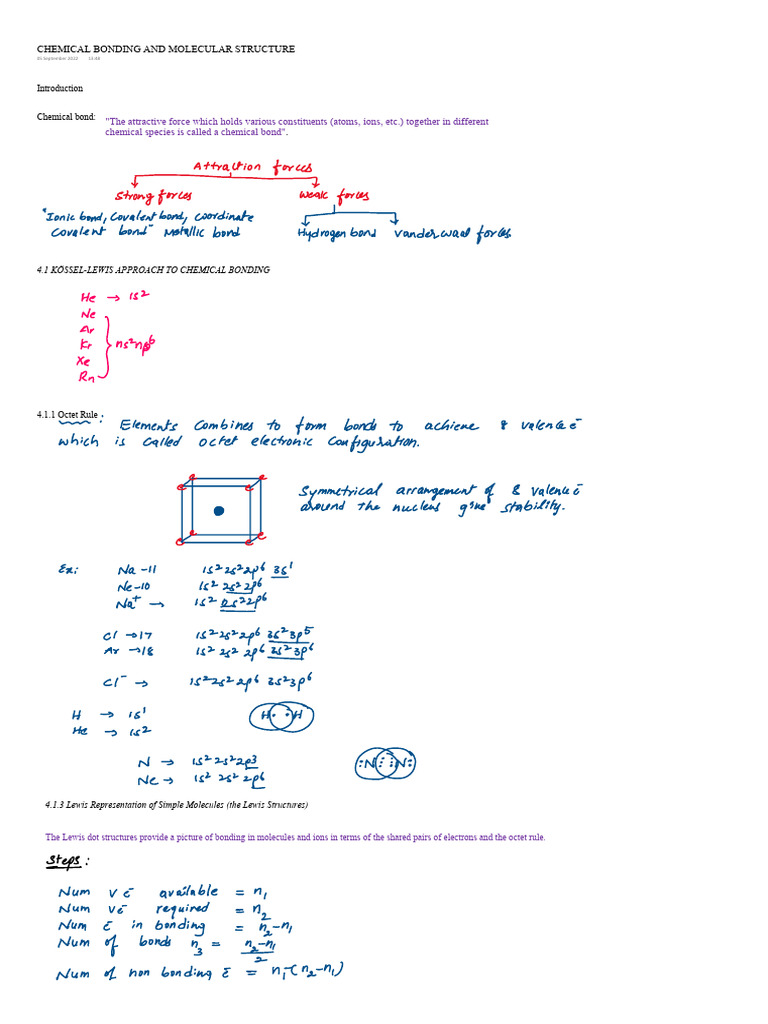 CHEMICAL BONDING AND MOLECULAR STRUCTURE
05 September 2022
Introduction
Chemical bond:
"The attractive force which holds various constituents (atoms, ions, etc.) together in different
chemical species is called a chemical bond".
Attraction forces
Strong forces weak forces
"Ionic bond, Covalent bond, coordinate
Covalent bond" Metallic bond
Hydrogen bond Vander waal forces
4.1 KÖSSEL-LEWIS APPROACH TO CHEMICAL BONDING
He → 1s²
Ne
Ar
Kr
Xe
Rn
ns²np⁶
4.1.1 Octet Rule :
Elements combines to form bonds to achieve 8 valence ē
which is called octet electronic configuration.
e e
e e
e e
e e
Symmetrical arrangement of 8 valence ē
around the nucleus give stability.
Ex: Na -11 1s² 2s² 2p⁶ 3s¹
Ne-10 1s² 2s² 2p⁶
Na⁺ → 1s² 2s² 2p⁶
Cl → 17 1s² 2s² 2p⁶ 3s² 3p⁵
Ar → 18 1s² 2s² 2p⁶ 3s² 3p⁶
Cl⁻ → 1s² 2s² 2p⁶ 3s² 3p⁶
H → 1s¹ H· ·H
He → 1s²
N → 1s² 2s² 2p3 :N⋮⋮N:
Ne → 1s² 2s² 2p⁶
4.1.3 Lewis Representation of Simple Molecules (the Lewis Structures)
The Lewis dot structures provide a picture of bonding in molecules and ions in terms of the shared pairs of electrons and the octet rule.
Steps :
Num v ē available = n₁
Num v ē required = n₂
Num ē in bonding = n₂-n₁
Num of bonds n₃ = n₂-n₁/2
Num of non bonding ē = n₁-(n₂-n₁)